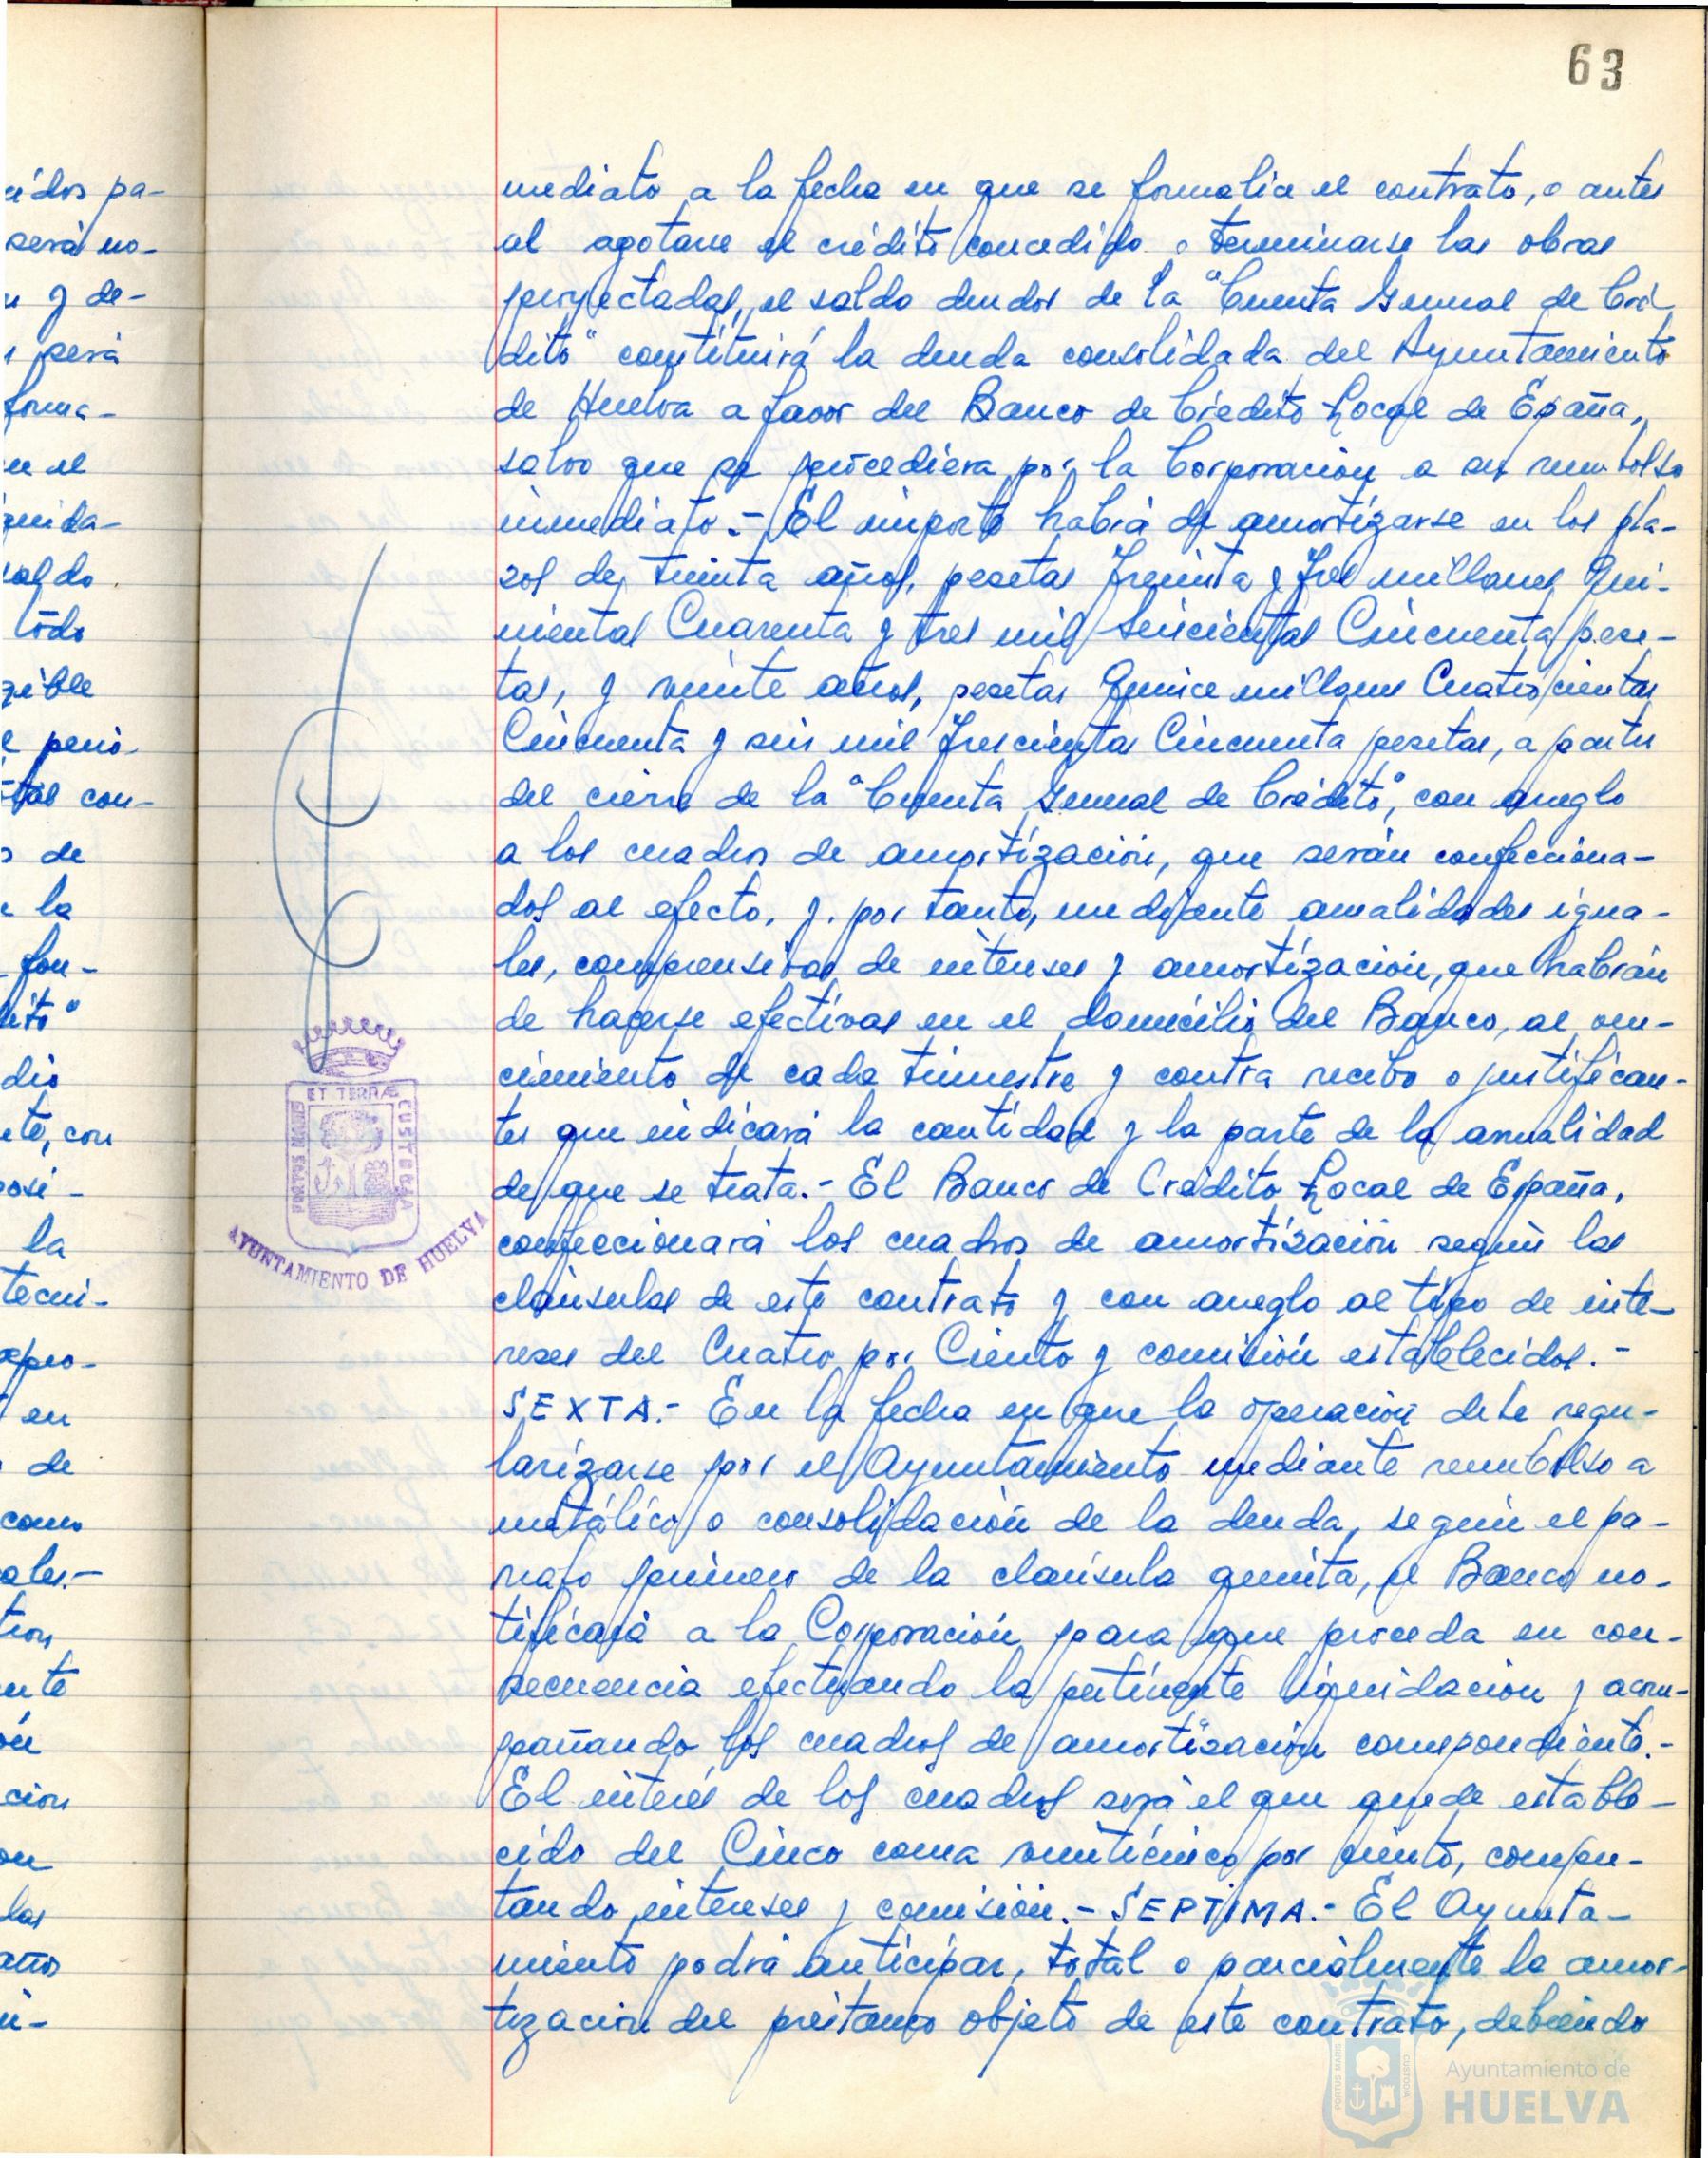 63
mediato a la fecha en que se formalice el contrato, o antes
al agotarse el crédito concedido o terminarse las obras
proyectadas, el saldo deudor de la "Cuenta General de Cré
dito" constituirá la deuda consolidada del Ayuntamiento
de Huelva a favor del Banco de Credito Local de España,
salvo que se procediera por la Corporación a su reembolso
inmediato.- El importe habrá de amortizarse en los pla-
zos de, treinta años, pesetas Treinta y Tres millones Qui-
nientas Cuarenta y tres mil Seiscientas Cincuenta pese-
tas, y veinte años, pesetas Quince millones Cuatrocientas
Cincuenta y seis mil Trescientas Cincuenta pesetas, a partir
del cierre de la "Cuenta General de Crédito", con arreglo
a los cuadros de amortización, que serán confecciona-
dos al efecto. y. por tanto, mediante anualidades igua-
les, comprensivas de intereses y amortización, que habrán
de hacerse efectivas en el domicilio del Banco, al ven-
cimiento de cada trimestre y contra recibo o justifican-
tes que indicará la cantidad y la parte de la anualidad
de que se trata.- El Banco de Crédito Local de España,
confeccionará los cuadros de amortización según las
cláusulas de este contrato y con arreglo al tipo de inte-
reses del Cuatro por Ciento y comisión establecidos.-
SEXTA.- En la fecha en que la operación debe regu-
larizarse por el Ayuntamiento mediante reembolso a
metálico o consolidación de la deuda, según el pá-
rrafo primero de la cláusula quinta, el Banco no-
tificará a la Corporación para que proceda en con-
secuencia efectuando la pertinente liquidación y acom-
pañando los cuadros de amortización correspondiente.-
El interés de los cuadros será el que quede estable-
cido del Cinco coma veinticinco por ciento, compu-
tando intereses y comisión.- SEPTIMA.- El Ayunta-
miento podrá anticipar, total o parcialmente la amor-
tización del préstamo objeto de este contrato, debiendo
ET TERRÆ
PORTUS MARIS
CUSTODIA
AYUNTAMIENTO DE HUELVA
Ayuntamiento de
HUELVA